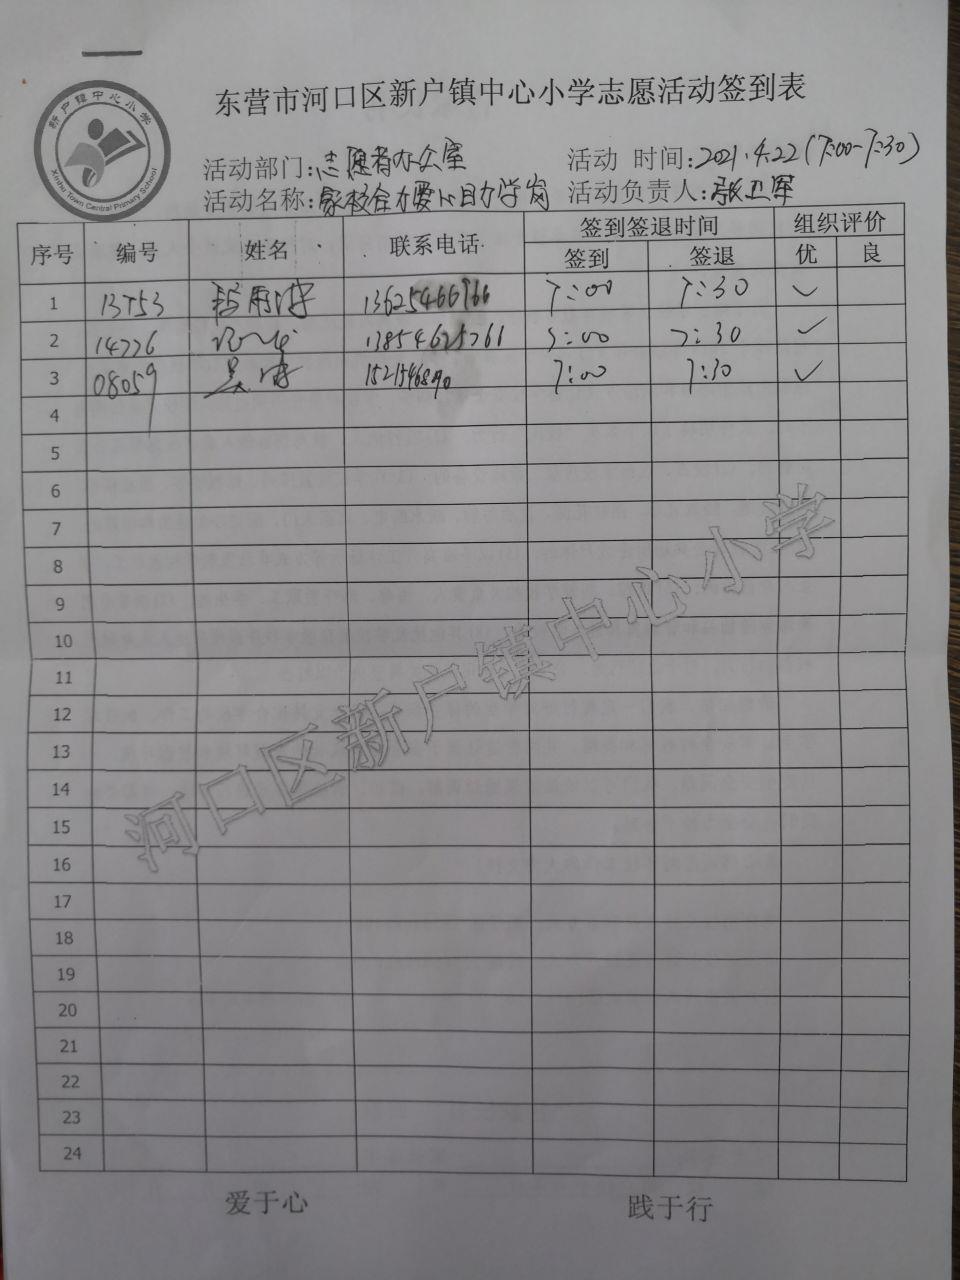 新户镇中心小学
Xinhu Town Central Primary School
东营市河口区新户镇中心小学志愿活动签到表
活动部门:志愿者办公室 活动 时间:2021.4.22(7:00-7:30)
活动名称:家校合力爱心助学岗 活动负责人:张卫军
序号 编号 姓名 联系电话 签到签退时间 组织评价
签到 签退 优 良
1 13753 13625466966 7:00 7:30 ✓
2 14776 13854625766 7:00 7:30 ✓
3 08059 7:00 7:30 ✓
4
5
6
7
8
9
10
11
12
13
14
15
16
17
18
19
20
21
22
23
24
河口区新户镇中心小学
爱于心 践于行